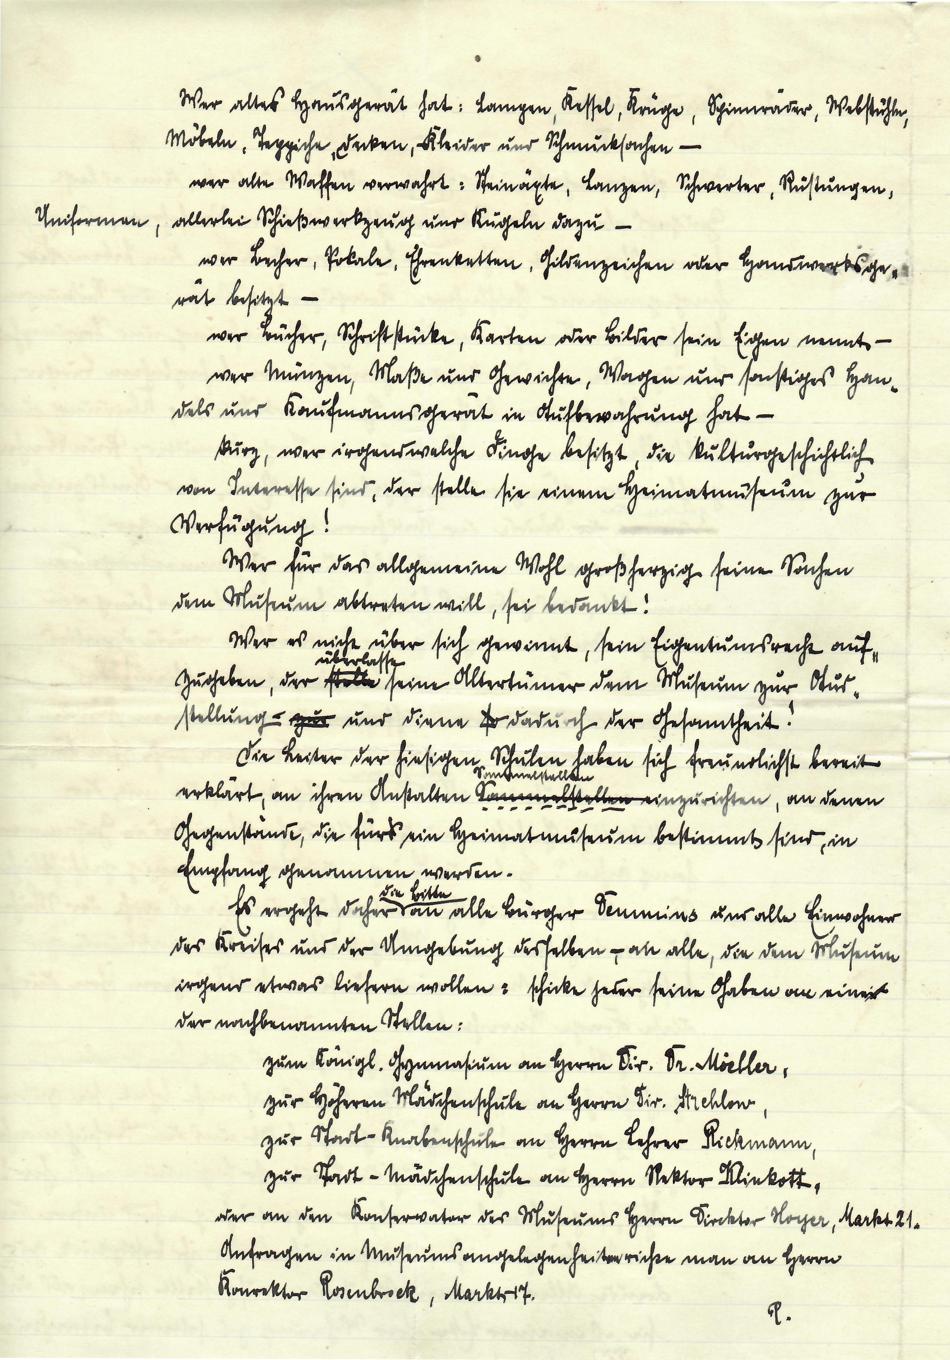 Wer altes Hausgerät hat: Lampen, Kessel, Krüge, Spinnräder, Webstühle,
Möbeln, Teppiche, Decken, Kleider und Schmucksachen —
wer alte Waffen verwahrt: Steinäxte, Lanzen, Schwerter, Rüstungen,
Uniformen, allerlei Schießwerkzeug und Kugeln dazu —
wer Becher, Pokale, Ehrenketten, Gildenzeichen oder Handwerksge-
rät besitzt —
wer Bücher, Schriftstücke, Karten oder Bilder sein Eigen nennt —
wer Münzen, Maße und Gewichte, Wagen und sonstiges Han-
dels und Kaufmannsgerät in Aufbewahrung hat —
kurz, wer irgendwelche Dinge besitzt, die kulturgeschichtlich
von Interesse sind, der stelle sie einem Heimatmuseum zur
Verfügung!
Wer für das allgemeine Wohl großherzig seine Sachen
dem Museum abtreten will, sei bedankt!
Wer es nicht über sich gewinnt, sein Eigentumsrecht auf-
überlasse
zugeben, der stelle seine Altertümer dem Museum zur Aus-
stellung - zur und diene dadurch der Gesamtheit!
Die Leiter der hiesigen Schulen haben sich freundlichst bereit
Sammelstellen
erklärt, an ihren Anstalten Sammelstellen einzurichten, an denen
Gegenstände, die fürs ein Heimatmuseum bestimmt sind, in
Empfang genommen werden.
die Bitte
Es ergeht daher an alle Bürger Demmins und alle Einwohner
des Kreises und der Umgebung desselben – an alle, die dem Museum
irgend etwas liefern wollen: schicke jeder seine Gaben an eine
der nachbenannten Stellen:
zum Königl. Gymnasium an Herrn Dir. Dr. Moeller,
zur Höheren Mädchenschule an Herrn Dir.
zur Stadt-Knabenschule an Herrn Lehrer Rickmann,
zur Stadt-Mädchenschule an Herrn Rektor Klinkott,
oder an den Konservator des Museums Herrn Direktor Hoyer, Markt 21.
Anfragen in Museumsangelegenheiten richte man an Herrn
Konrektor Rosenbrock, Markt 17.
R.